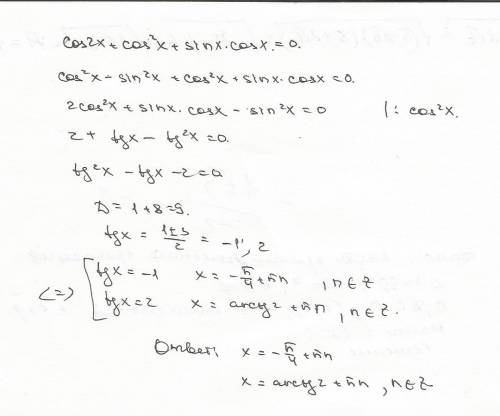 cos2x + cos²x + sinx·cosx = 0.
cos²x - sin²x + cos²x + sinx·cosx = 0.
2cos²x + sinx·cosx - sin²x = 0 |: cos²x.
2 + tgx - tg²x = 0.
tg²x - tgx - 2 = 0
D = 1 + 8 = 9.
tgx = (1±3)/2 = -1; 2
<=> [ tgx = -1 x = -π/4 + πn , n ∈ Z
tgx = 2 x = arctg2 + πn , n ∈ Z.
Ответ: x = -π/4 + πn
x = arctg2 + πn , n ∈ Z